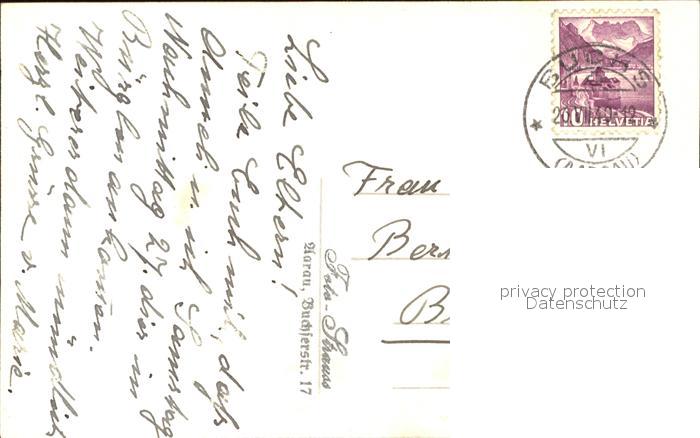 Liebe Eltern!
Teile Euch mit, dass
u. ich Samstag
Nachmittag 27. dies in
Bürglen ankamen.
Weiteres dann mündlich
Herzl. Grüsse v. Marie.
Foto-Strauss
Aarau, Buchserstr. 17
Frau
BUCHS
VI
(AARGAU)
10 HELVETIA
privacy protection
Datenschutz